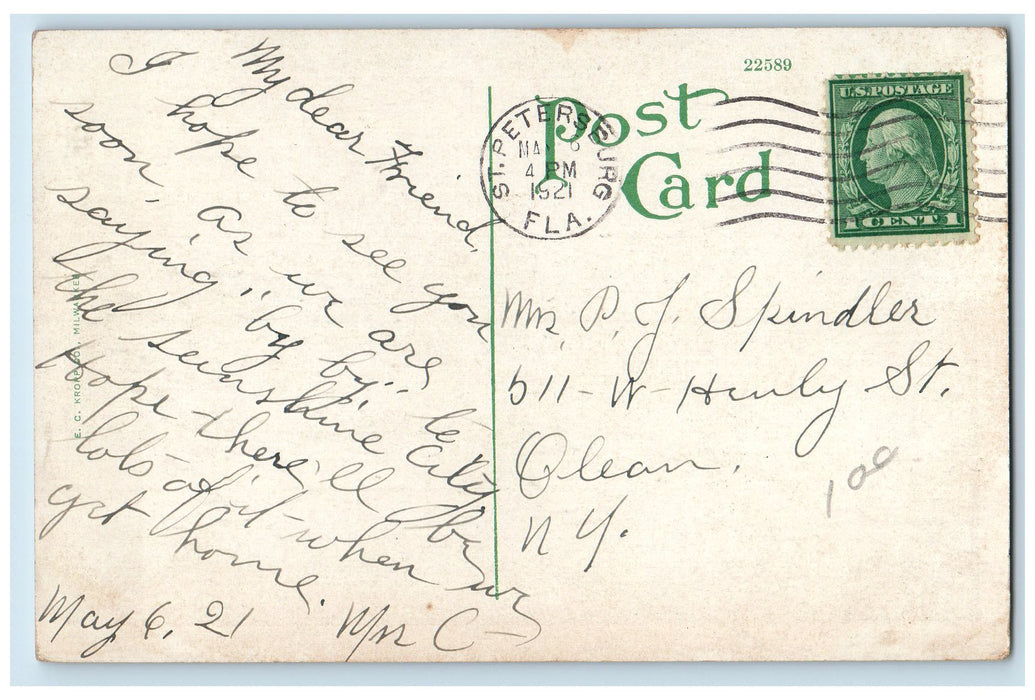 22589
Post
Card
U.S. POSTAGE
1 CENT 1
ST. PETERSBURG
MA 6
4 PM
1921
FLA.
My dear Friend,
I hope to see you
soon, as we are
saying, "by by" to
the sunshine City
Hope there'll be
lots of it when we
get home.
May 6, 21 Mrs C-
Mrs P. J. Spindler
511-W-Henly St.
Olean,
N Y.
100
E. C. KROPP CO. MILWAUKEE